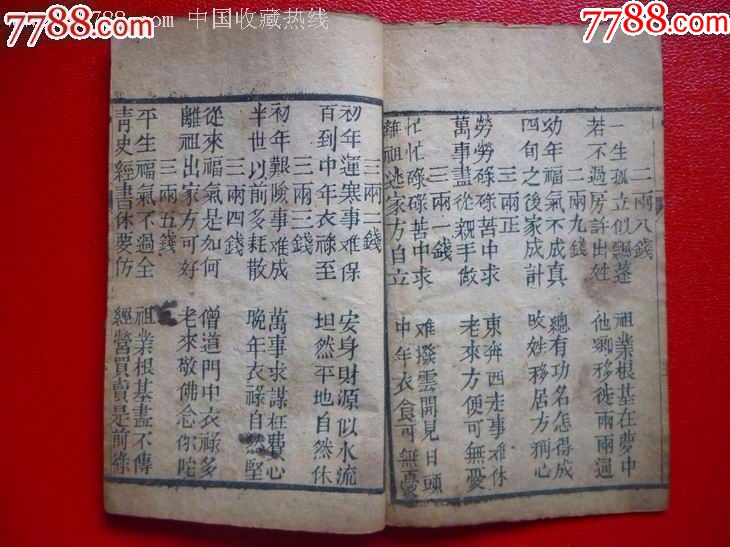 7788.com 中国收藏热线
7788.com
7788.com
二兩八錢
一生孤立似飄蓬 祖業根基在夢中
若不過房許出姓 他鄉移徙兩兩
二兩九錢
幼年福氣不成真 總有功名怎得成
四旬之後家成計 改姓移居方稱心
三兩正
勞勞碌碌苦中求 東奔西走事难休
萬事盡從親手做 老來方便可無憂
三兩一錢
忙忙碌碌苦中求 难撥雲開見日頭
離祖迯家方自立 中年衣食可無憂
三兩二錢
初年運寒事难保 安身財源似水流
百到中年衣祿至 坦然平地自然休
三兩三錢
初年艱險事难成 萬事求謀枉費心
半世以前多耗散 晚年衣祿自然堅
三兩四錢
從來福氣是如何 僧道門中衣祿多
離祖出家方可好 老來敬佛念
三兩五錢
平生福氣不過全 祖業根基盡不傳
青史經書休要仿 經營買賣是前緣
7788.com
7788.com